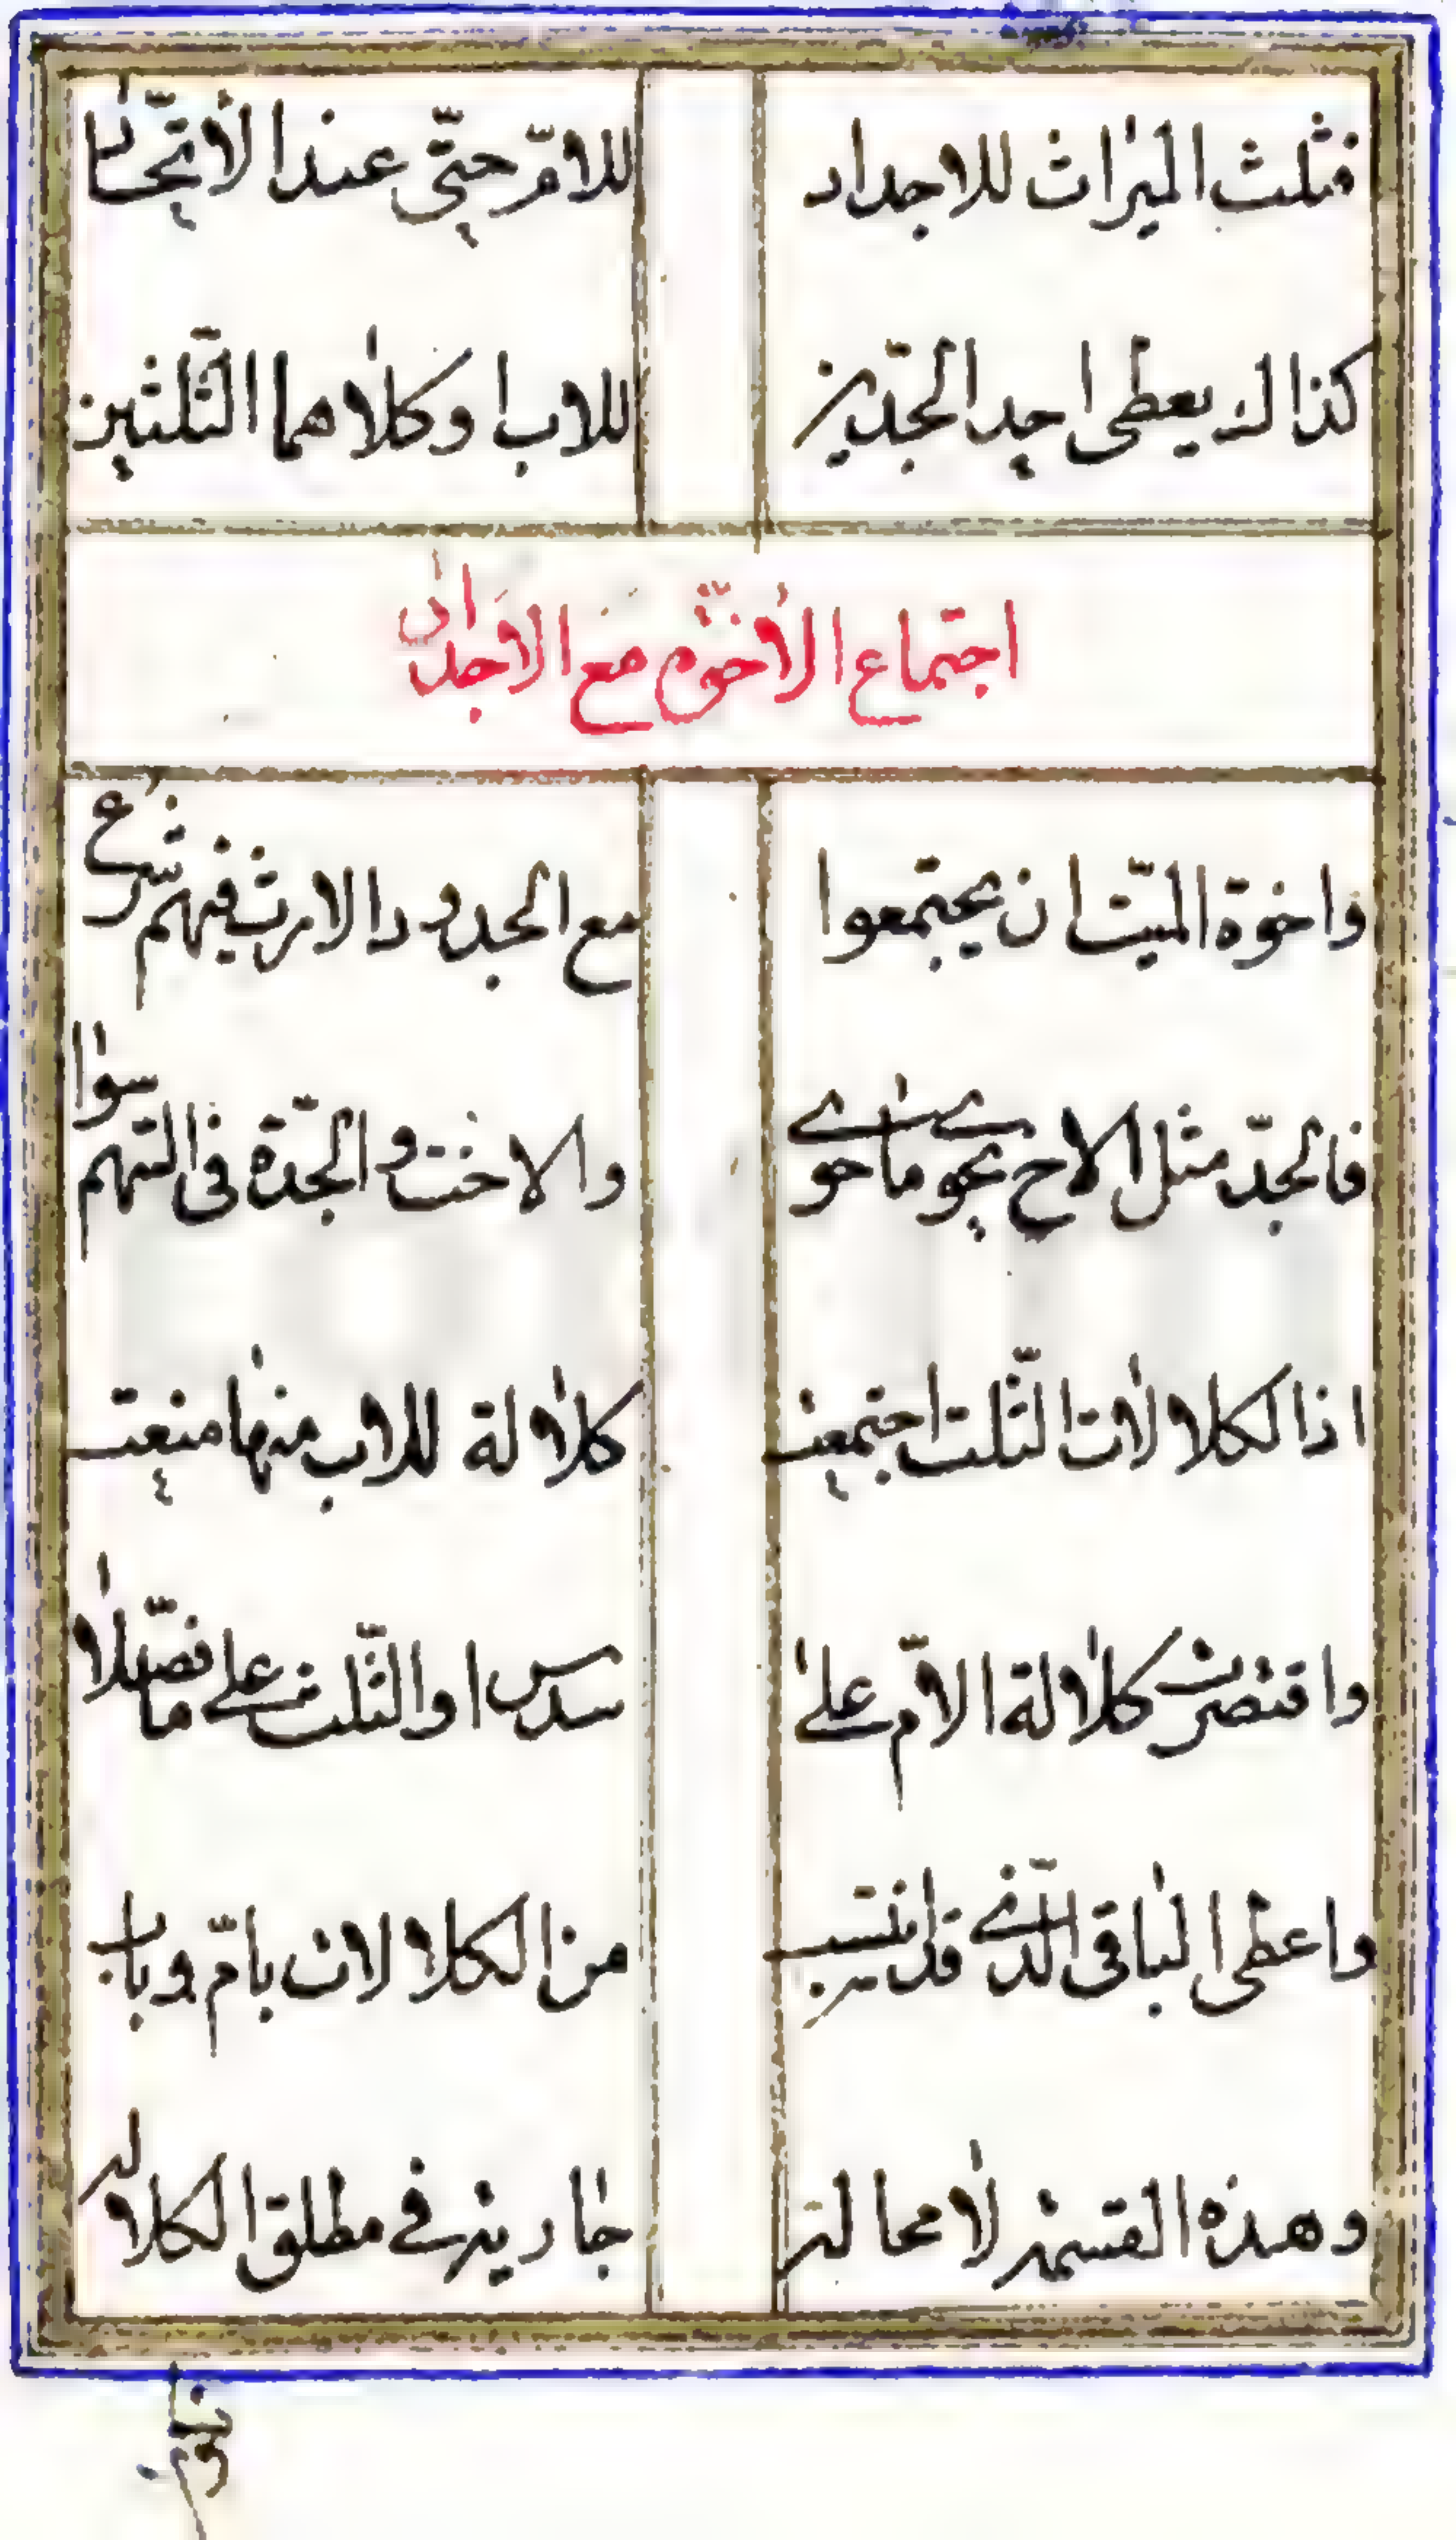 فثلث الميراث للاجداد للامّ حتّى عند الاتّحاد
كذالك يعطى احد الجدّين للاب او كلاهما الثّلثين
اجتماع الأخوّة مع الأجداد
واخوة الميّت ان يجتمعوا مع الجدود الارث فيهم شرع
فالجدّ مثل الاخ يحوى ما حوى والاخت والجدّة فى السّهم سوا
اذا الكلالات الثّلث اجتمعت كلالة للاب منها منعت
واقتصرت كلالة الامّ على سدس او الثّلث على ما فصّلا
واعطى الباقى الّذى قد انتسب من الكلالات بامّ وباب
وهذه القسمة لا محاله جارية فى مطلق الكلاله